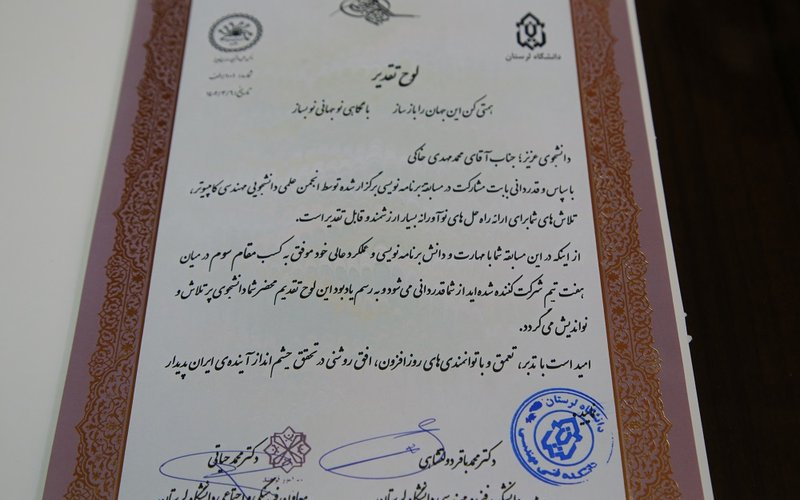 دانشگاه لرستان
لوح تقدیر
همتی کن این جهان را باز ساز با نگاهی نو جهانی نو بساز
دانشجوی عزیز؛ جناب آقای محمدمهدی خاکی
با سپاس و قدردانی بابت مشارکت در مسابقه برنامه نویسی برگزار شده توسط انجمن علمی دانشجویی مهندسی کامپیوتر،
تلاش های شما برای ارائه راه حل های نوآورانه بسیار ارزشمند و قابل تقدیر است.
از اینکه در این مسابقه شما با مهارت و دانش برنامه نویسی و عملکرد عالی خود موفق به کسب مقام سوم در میان
هفت تیم شرکت کننده شده اید از شما قدردانی می شود و به رسم یادبود این لوح تقدیم محضر شما دانشجوی پر تلاش و
نواندیش می گردد.
امید است با تدبر، تعمق و با توانمندی های روز افزون، افق روشنی در تحقق چشم انداز آینده ی ایران پدیدار
دانشگاه لرستان
دانشکده فنی مهندسی
دکتر محمدباقر دولتشاهی دکتر محمد حیاتی